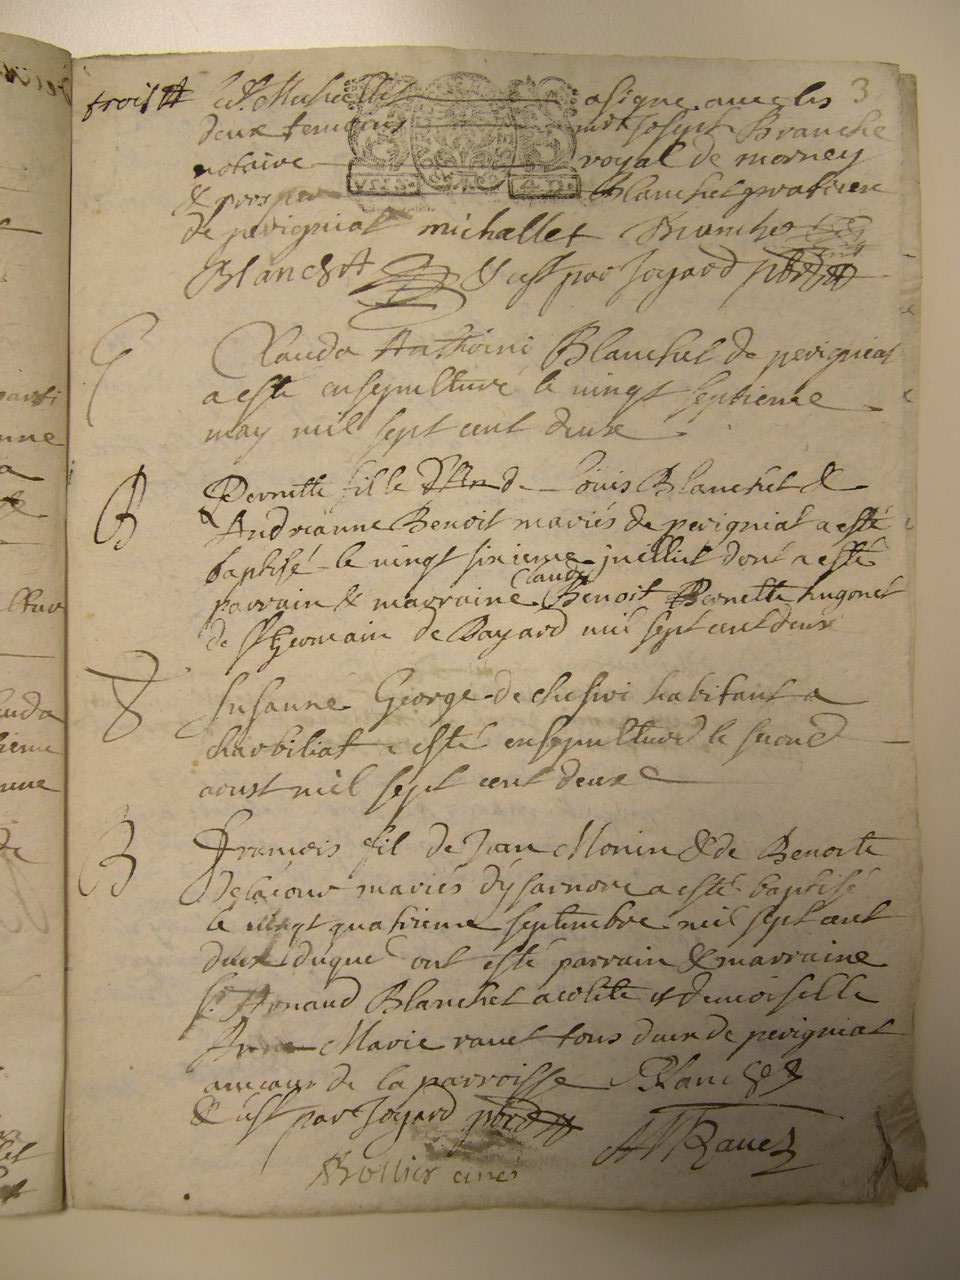 3
trois
led. Michallet a signe avec les
deux temoins mre Joseph Branche
notaire royal de morney
& prosper Blanchet praticien
de perigniat michallet Branche
Blanchet & c'est par Joyard pbre
Clauda Anthoini Blanchet de perigniat
a este ensepulturé le vingt septieme
may mil sept cent deux
B
Pernette fille de Louis Blanchet &
Andreanne Benoit mariés de perigniat a esté
baptisé le vingt sixieme juillict dont a esté
Claude
parrain & marraine Benoit Pernette hugonet
de St Germain de Bayard mil sept cent deux
Susanne George de habitant a
charbiliat a esté ensepulturé le second
aoust mil sept cent deux
B
francois fil de Jean Monin & de Benoite
delacour mariés d'ysarnore a esté baptisé
le vingt quatrieme septembre mil sept cent
deux duquel ont esté parrain & marraine
Sr. Arnaud Blanchet acolite et demoiselle
Anne Marie ravet tous deux de perigniat
de la parroisse Blanchet
& c'est par Joyard pbre
AM Ravet